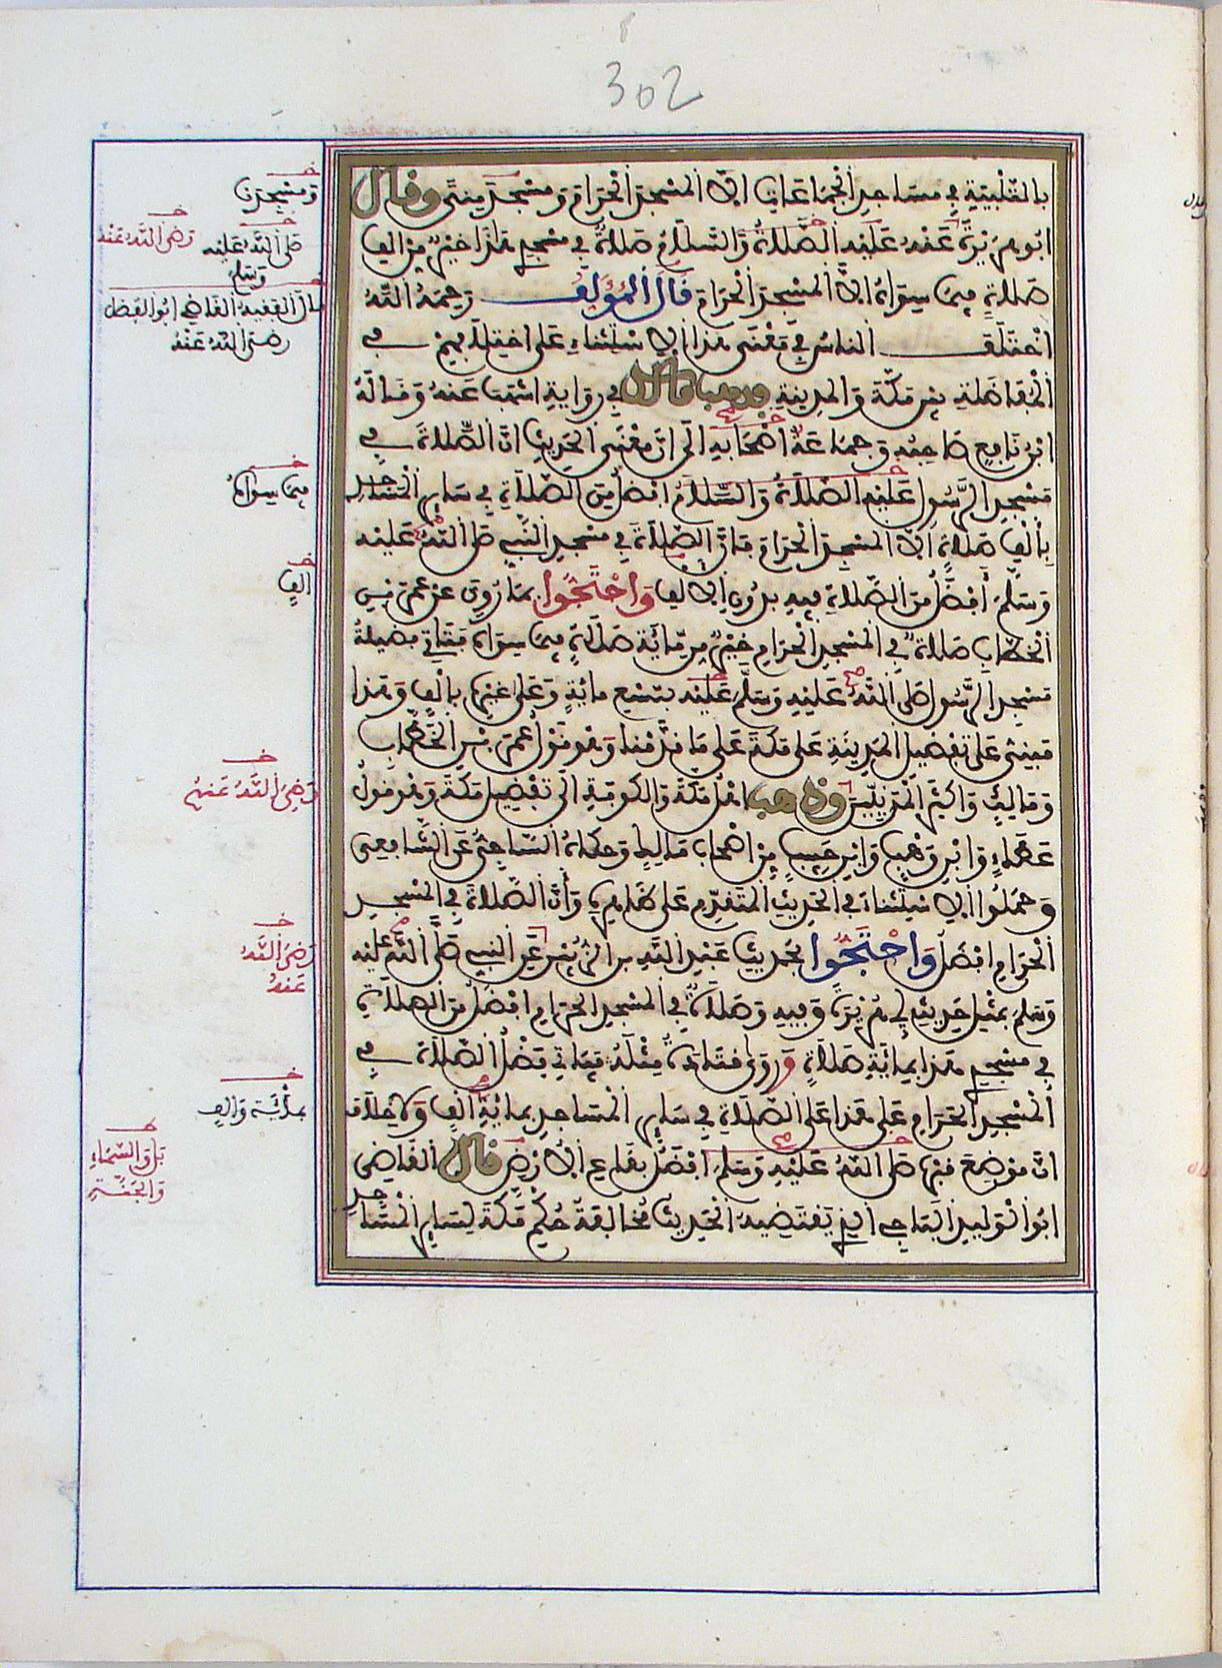 302
بالتلبية في مساجد الجماعات الا المسجد الحرام ومسجد منى وقال
ابو هريرة عنه عليه الصلاة والسلام صلاة في مسجدي هذا خير من الف
صلاة فيما سواه الا المسجد الحرام قال المؤلف رحمه الله
اختلف الناس في معنى هذا الاستثناء على اختلافهم في
المفاضلة بين مكة والمدينة فذهب مالك في رواية اشهب عنه وقاله
ابن نافع صاحبه وجماعة اصحابه الى ان معنى الحديث ان الصلاة في
مسجد الرسول عليه الصلاة والسلام افضل من الصلاة في ساير المساجد
بألف صلاة الا المسجد الحرام فان الصلاة في مسجد النبي صلى الله عليه
وسلم أفضل من الصلاة فيه بدون الالف واحتجوا بما روي عن عمر بن
الخطاب صلاة في المسجد الحرام خير من مائة صلاة فيما سواه فتاتي فضيلة
مسجد الرسول صلى الله عليه وسلم عليه بتسع مائة وعلى غيره بالف وهذا
مبني على تفضيل المدينة على مكة على ما قدمناه وهو قول عمر بن الخطاب
ومالك واكثر المدنيين وذهب اهل مكة والكوفة الى تفضيل مكة وهو قول
عطاء وابن وهب وابن حبيب من اصحاب مالك وحكاه الساجي عن الشافعي
وحملوا الاستثناء في الحديث المتقدم على ظاهره وأن الصلاة في المسجد
الحرام افضل واحتجوا بحديث عبد الله بن الزبير عن النبي صلى الله عليه
وسلم بمثل حديث ابي هريرة وفيه وصلاة في المسجد الحرام افضل من الصلاة
في مسجدي هذا بمائة صلاة وروى قتادة مثله فياتي فضل الصلاة في
المسجد الحرام على هذا على الصلاة في ساير المساجد بمائة الف ولا خلاف
ان موضع قبره صلى الله عليه وسلم افضل بقاع الارض قال القاضي
ابو الوليد الباجي الذي يقتضيه الحديث مخالفة حكم مكة لساير المساجد
ومسجد
صلى الله عليه
وسلم
رضي الله عنه
قال الفقيه القاضي ابو الفضل
رضي الله عنه
فيما سواه
الف
رضي الله عنهم
رضي الله
عنه
بمائة والف
بل والسماء